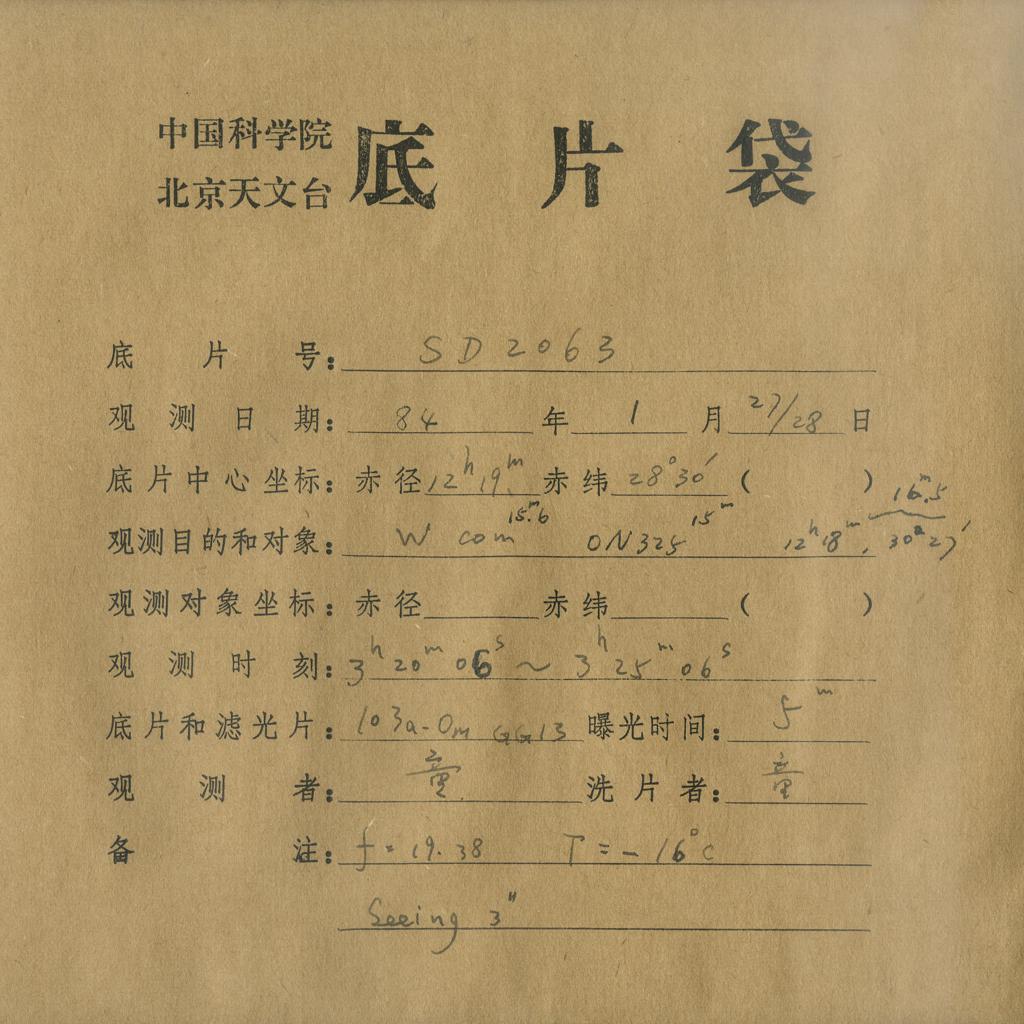 中国科学院
北京天文台
底片袋
底片号: SD2063
观测日期: 84年1月27/28日
底片中心坐标: 赤径12ʰ19ᵐ赤纬28°30′( )
16ᵐ.5
观测目的和对象: W com 15ᵐ.6 ON325 15ᵐ 12ʰ18ᵐ, 30°27′
观测对象坐标: 赤径 赤纬 ( )
观测时刻: 3ʰ20ᵐ06ˢ~3ʰ25ᵐ06ˢ
底片和滤光片: 103a-O GG13 曝光时间: 5ᵐ
观测者: 童 洗片者: 童
备注: f=19.38 T=-16°C
Seeing 3″